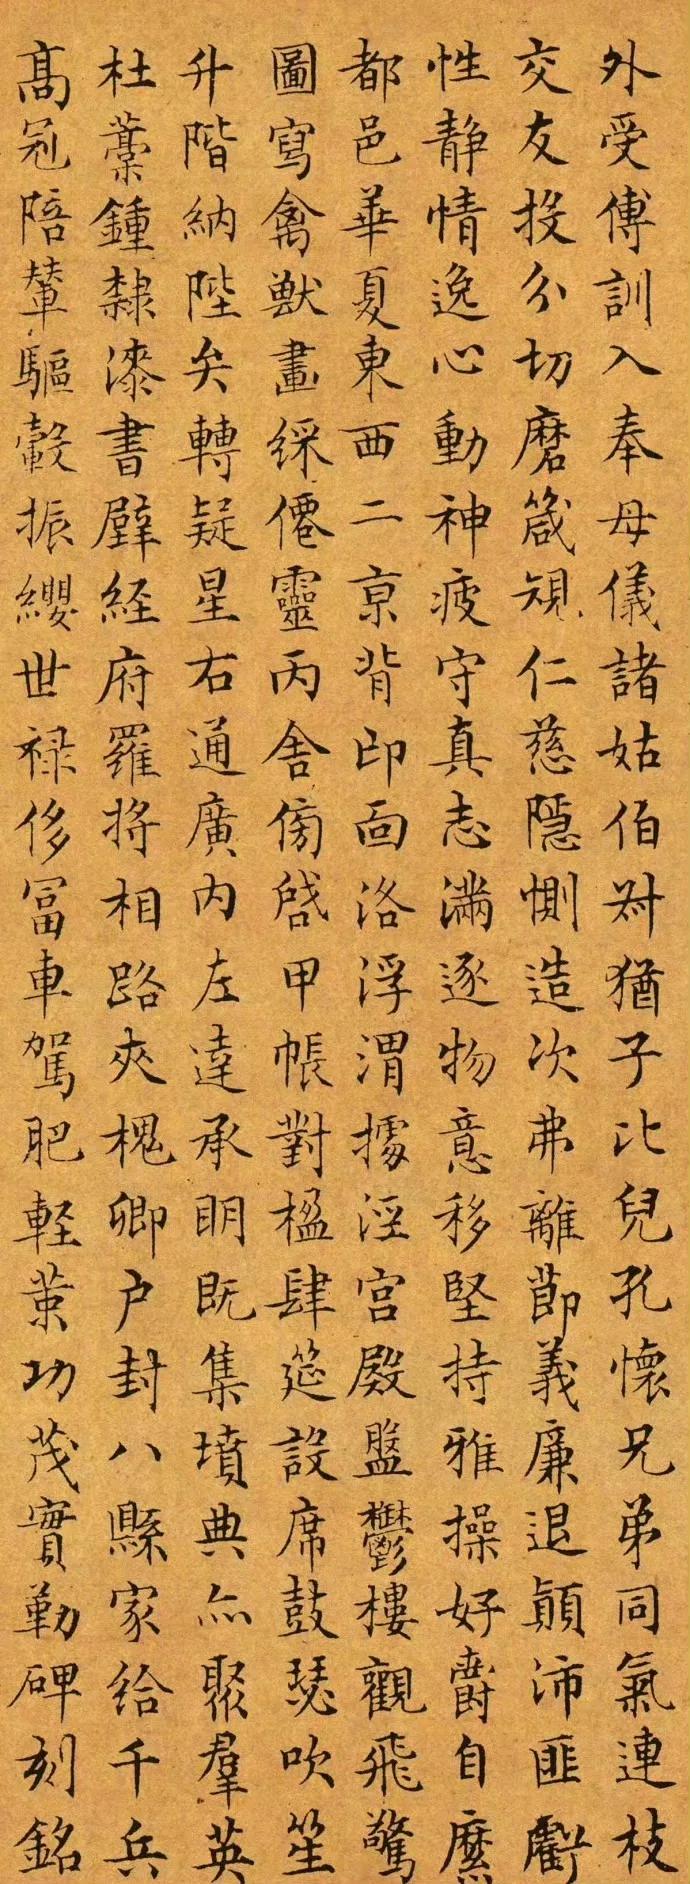 外受傅訓入奉母儀諸姑伯尗猶子比兒孔懷兄弟同氣連枝
交友投分切磨箴規仁慈隱惻造次弗離節義廉退顛沛匪虧
性靜情逸心動神疲守真志滿逐物意移堅持雅操好爵自縻
都邑華夏東西二京背邙面洛浮渭據涇宮殿盤鬱樓觀飛驚
圖寫禽獸畫綵僊靈丙舍傍啓甲帳對楹肆筵設席鼓瑟吹笙
升階納陛弁轉疑星右通廣內左達承明既集墳典亦聚羣英
杜藁鍾隸漆書壁経府羅將相路夾槐卿户封八縣家給千兵
高冠陪輦驅轂振纓世禄侈冨車駕肥軽策功茂實勒碑刻銘